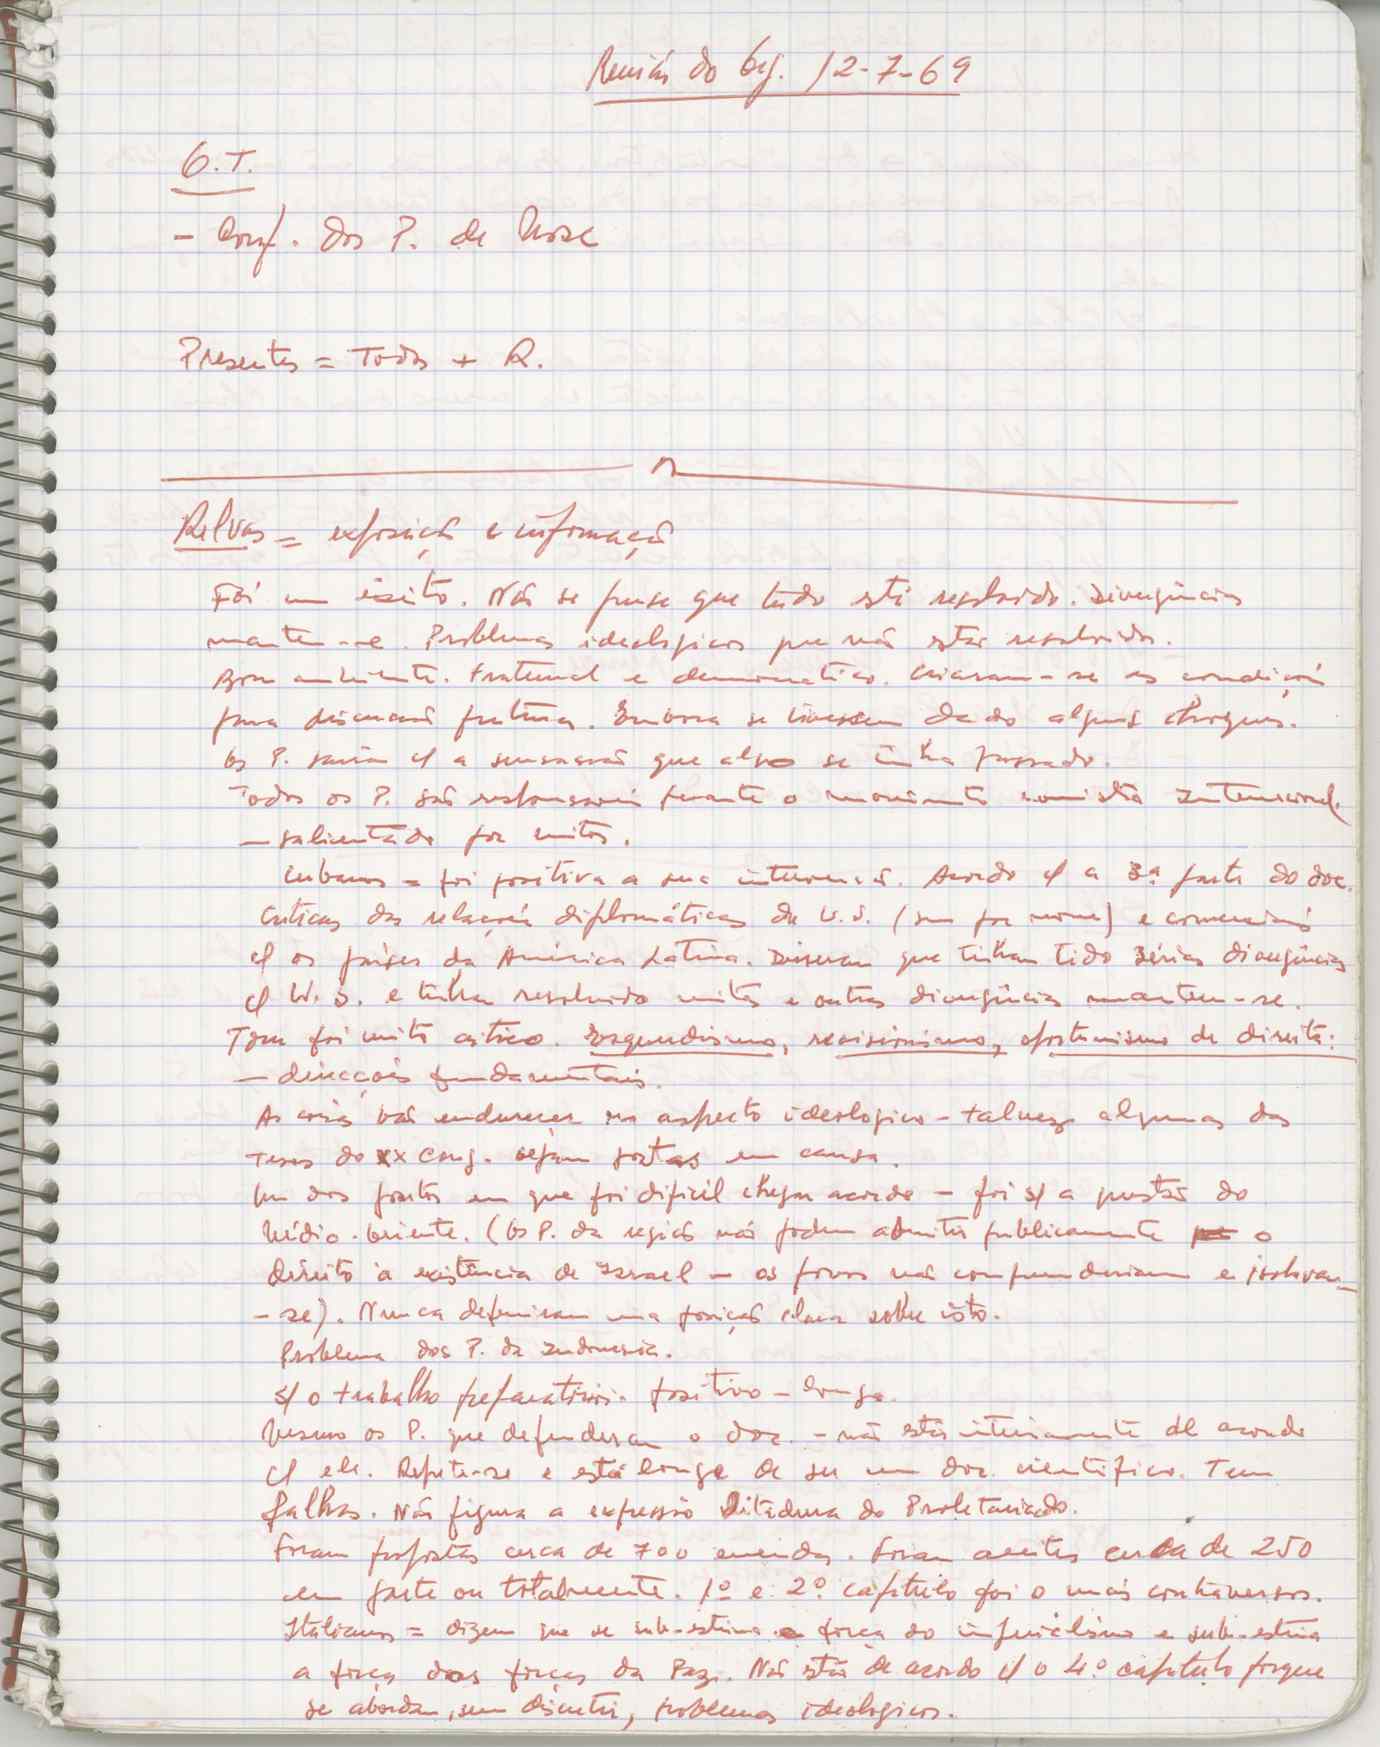 Reunião do Org. 12-7-69
O.T.
- Conf. dos P. de Mosc
Presentes = Todos + R.
Relvas = exposição e informação
Foi um êxito. Não se pense que tudo está resolvido. Divergências
mantem-se. Problemas ideológicos que não estão resolvidos.
Bom ambiente. Fraternal e democrático. Criaram-se as condições
para discussão futura. Embora se tivessem dado alguns choques.
Os P. saíam c/ a sensação que algo se tinha passado.
Todos os P. são responsáveis perante o movimento comunista Internacional
- salientado por muitos.
Cubanos = foi positiva a sua intervenção. Acordo c/ a 3ª parte do doc.
Críticas das relações diplomáticas da U.S. (sem por nome) e comerciais
c/ os países da América Latina. Disseram que tinham tido sérias divergências
c/ U.S. e tinha resolvido muitas e outras divergências mantem-se.
Tom foi muito crítico. Esquerdismo, revisionismo, oportunismo de direita:
- direcções fundamentais.
As coisas vão endurecer no aspecto ideológico - talvez algumas das
teses do XX Cong. sejam postas em causa.
Um dos pontos em que foi difícil chegar acordo - foi s/ a questão do
Médio-Oriente. (Os P. da região não podem admitir publicamente o
direito à existência de Israel - os povos não compreenderiam e isolavam-
-se). Nunca definiram uma posição clara sobre isto.
Problema dos P. da Indonésia.
s/ o trabalho preparatório. positivo - longo.
Mesmo os P. que defenderam o doc. - não estão inteiramente de acordo
c/ ele. Repete-se e está longe de ser um doc. científico. Tem
falhas. Não figura a expressão Ditadura do Proletariado.
Foram propostas cerca de 700 emendas. Foram aceites cerca de 250
em parte ou totalmente. 1º e 2º capítulo foi o mais controverso.
Italianos = dizem que se sub-estima a força do imperialismo e sub-estima
a força das forças da Paz. Não estão de acordo c/ o 4º capítulo porque
se abordam, sem discutir, problemas ideológicos.